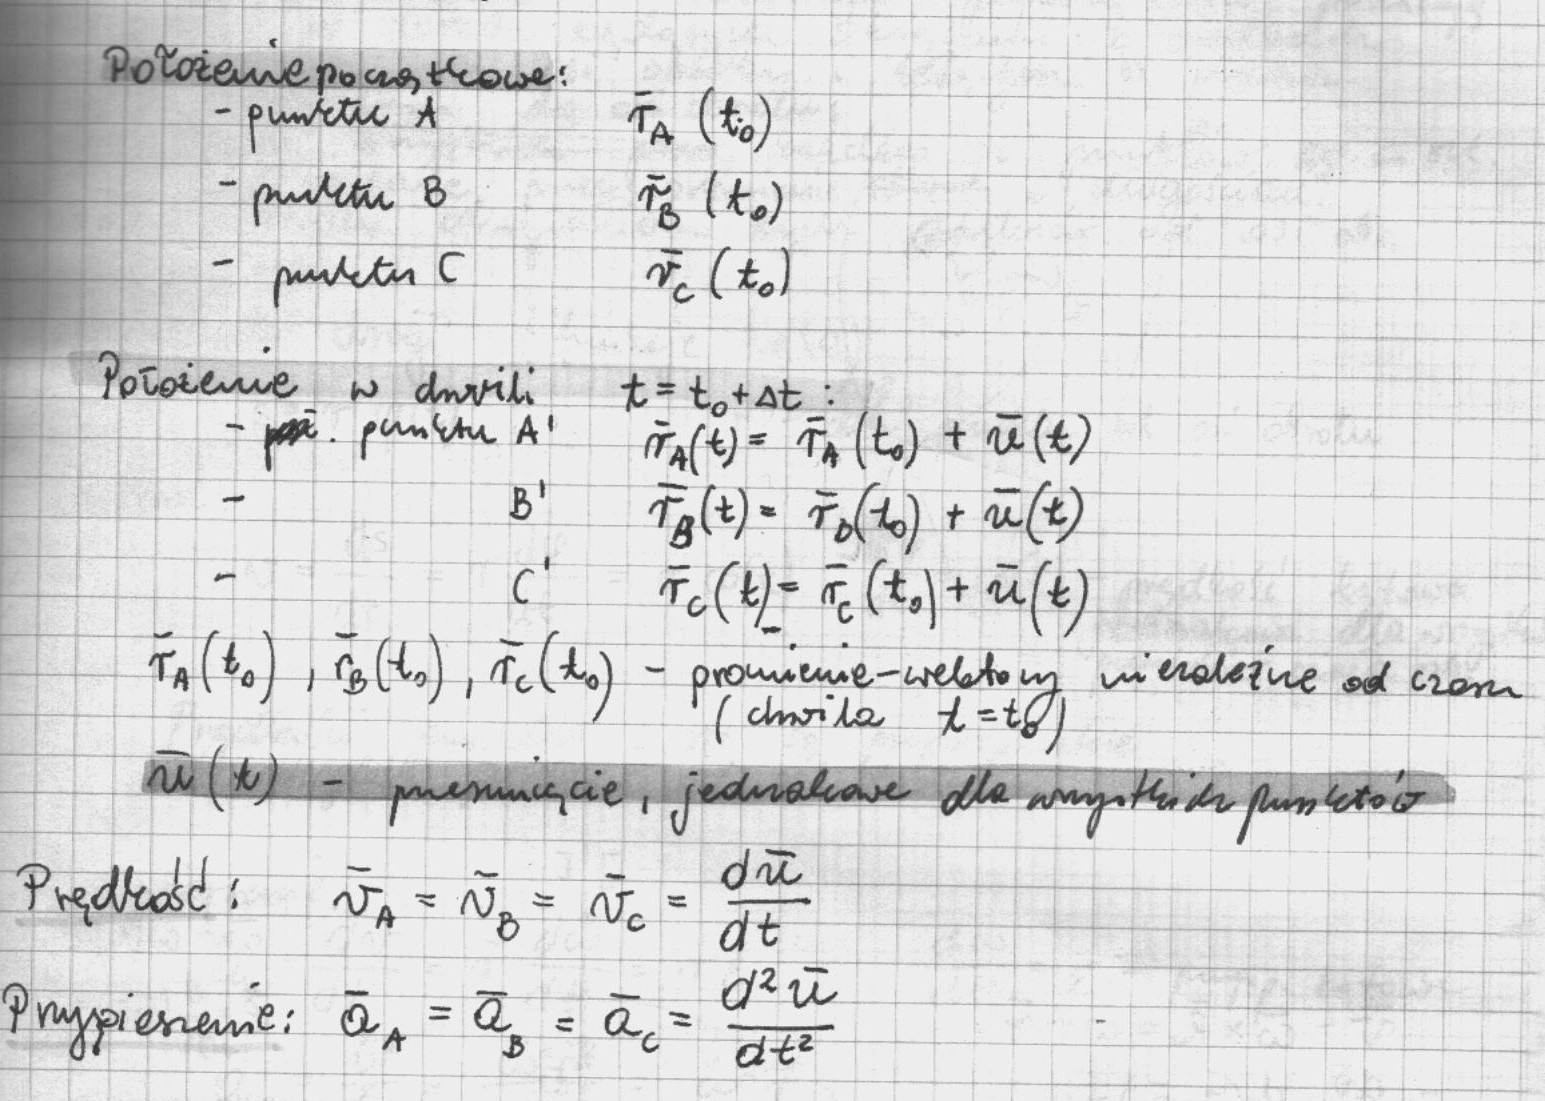 Położenie początkowe:
- punktu A r̄_A (t_0)
- punktu B r̄_B (t_0)
- punktu C r̄_C (t_0)
Położenie w chwili t = t_0 + Δt :
- punktu A' r̄_A(t) = r̄_A (t_0) + ū (t)
- B' r̄_B(t) = r̄_B(t_0) + ū(t)
- C' r̄_C(t) = r̄_C(t_0) + ū(t)
r̄_A(t_0), r̄_B(t_0), r̄_C(t_0) - promienie-wektory niezależne od czasu
(chwila t = t_0)
ū(t) - przesunięcie, jednakowe dla wszystkich punktów
Prędkość: v̄_A = v̄_B = v̄_C = dū/dt
Przyspieszenie: ā_A = ā_B = ā_C = d²ū/dt²